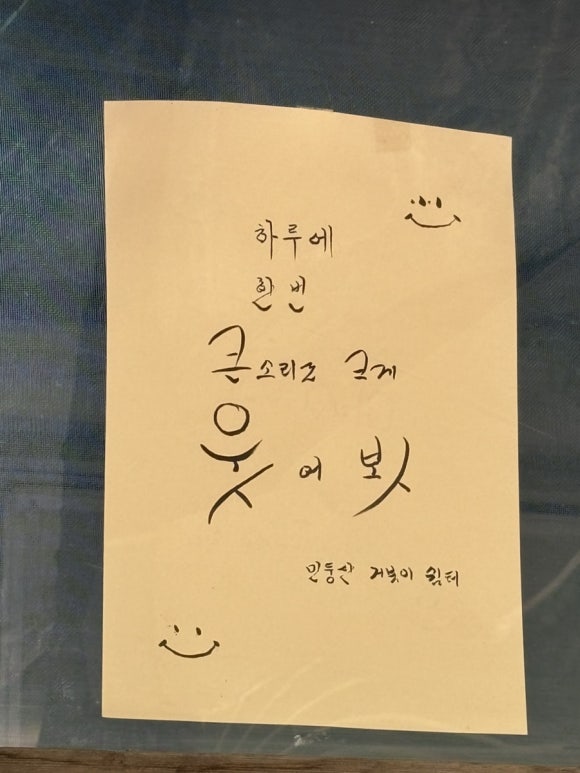 하루에
한 번
큰소리로 크게
웃어 봇
민둥산 거북이 쉼터